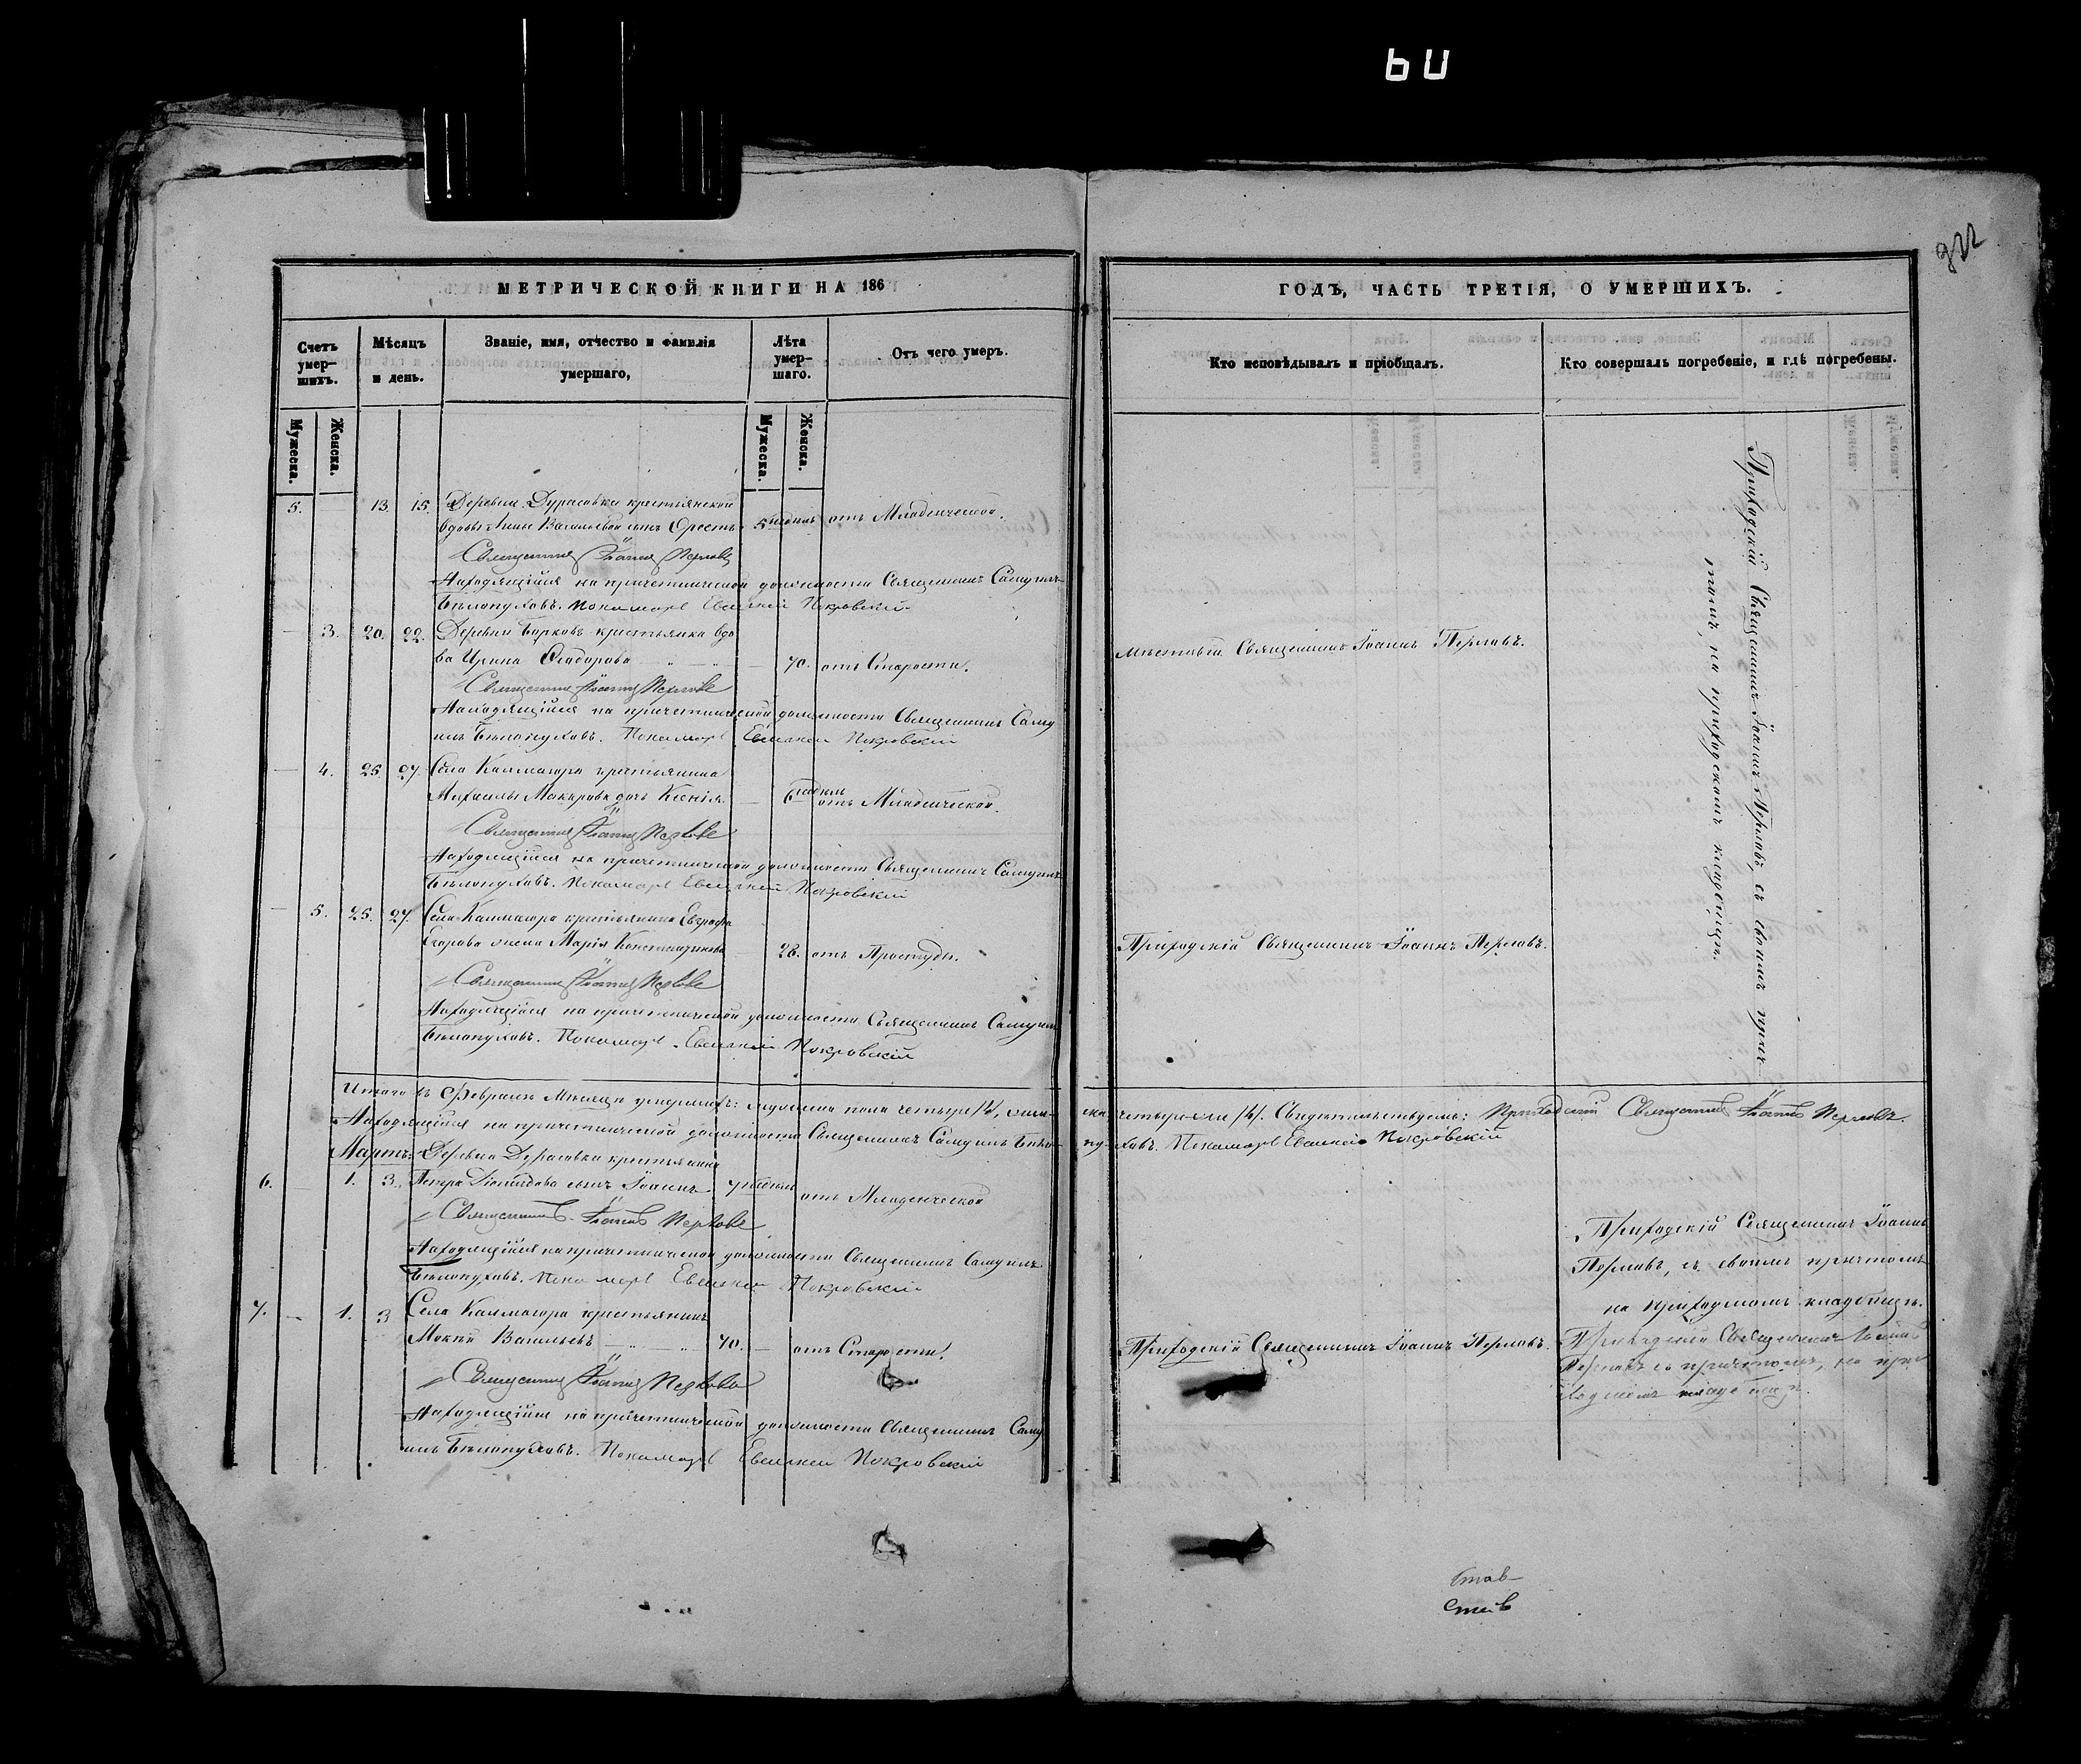 МЕТРИЧЕСКОЙ КНИГИ НА 186
Счетъ умер-шихъ.
Мѣсяцъ и день.
Званіе, имя, отчество и фамилія умершаго,
Лѣта умер-шаго.
Отъ чего умеръ.
Мужеска.
Женска.
Мужеска.
Женска.
5. 13. 15. Деревни Дурасовки крестьянской
вдовы Анны Васильевой сынъ Орестъ 5 недѣль отъ Младенческой.
Священникъ Іоаннъ Перловъ
Находящійся на причетнической должности Священникъ Самуилъ
Бѣлопуховъ. Пономарь Евгений Покровскій
3. 20. 22. Деревни Борковъ крестьянка вдо
ва Ирина Ѳеодорова 70. отъ Старости.
Священникъ Іоаннъ Перловъ
Находящійся на причетнической должности Священникъ Саму
илъ Бѣлопуховъ. Пономарь Покровскій
4. 25 27. Села Калмаюра крестьянина
Макарова дочь Ксенія 6 недѣль отъ Младенческой.
Священникъ Іоаннъ Перловъ
Находящійся на причетнической должности Священникъ Самуилъ
Бѣлопуховъ. Пономарь Покровскій
5. 25. 27. Села Калмаюра крестьянина Евграфа
Егорова жена Марія Константинова 28. отъ Простуды.
Священникъ Іоаннъ Перловъ
Находящійся на причетнической должности Священникъ Самуилъ
Бѣлопуховъ. Пономарь Покровскій
Итого въ Февралѣ Мѣсяцѣ умершихъ: мужеска пола четыре /4/, жен-
Находящійся на причетнической должности Священникъ Самуилъ Бѣло-
Мартъ. Деревни Дурасовки крестьянина
6. 1. 3. Петра сынъ Іоаннъ 7 недѣль отъ Младенческой
Священникъ Іоаннъ Перловъ
Находящійся на причетнической должности Священникъ Самуилъ
Бѣлопуховъ. Пономарь Покровскій
7. 1. 3 Села Калмаюра крестьянинъ
Мокѣй Васильевъ 70. отъ Старости.
Священникъ Іоаннъ Перловъ
Находящійся на причетнической должности Священникъ Саму
илъ Бѣлопуховъ. Пономарь Покровскій
ГОДЪ, ЧАСТЬ ТРЕТІЯ, О УМЕРШИХЪ.
Кто исповѣдывалъ и пріобщалъ.
Кто совершалъ погребеніе, и гдѣ погребены.
Мѣстный Священникъ Іоаннъ Перловъ.
Приходскій Священникъ Іоаннъ Перловъ.
Приходскій Священникъ Іоаннъ Перловъ, съ своимъ прич-
томъ, на приходскомъ кладбищѣ.
ска четыре /4/. Свидѣтельствуемъ: Приходский Священникъ Іоаннъ Перловъ.
пуховъ. Пономарь Покровскій
Приходскій Священникъ Іоаннъ
Перловъ, съ своимъ причтомъ
на приходскомъ кладбищѣ.
Приходскій Священникъ Іоаннъ Перловъ.
Приходскій Священникъ Іоаннъ
Перловъ съ причтомъ, на при
ходскомъ кладбищѣ.